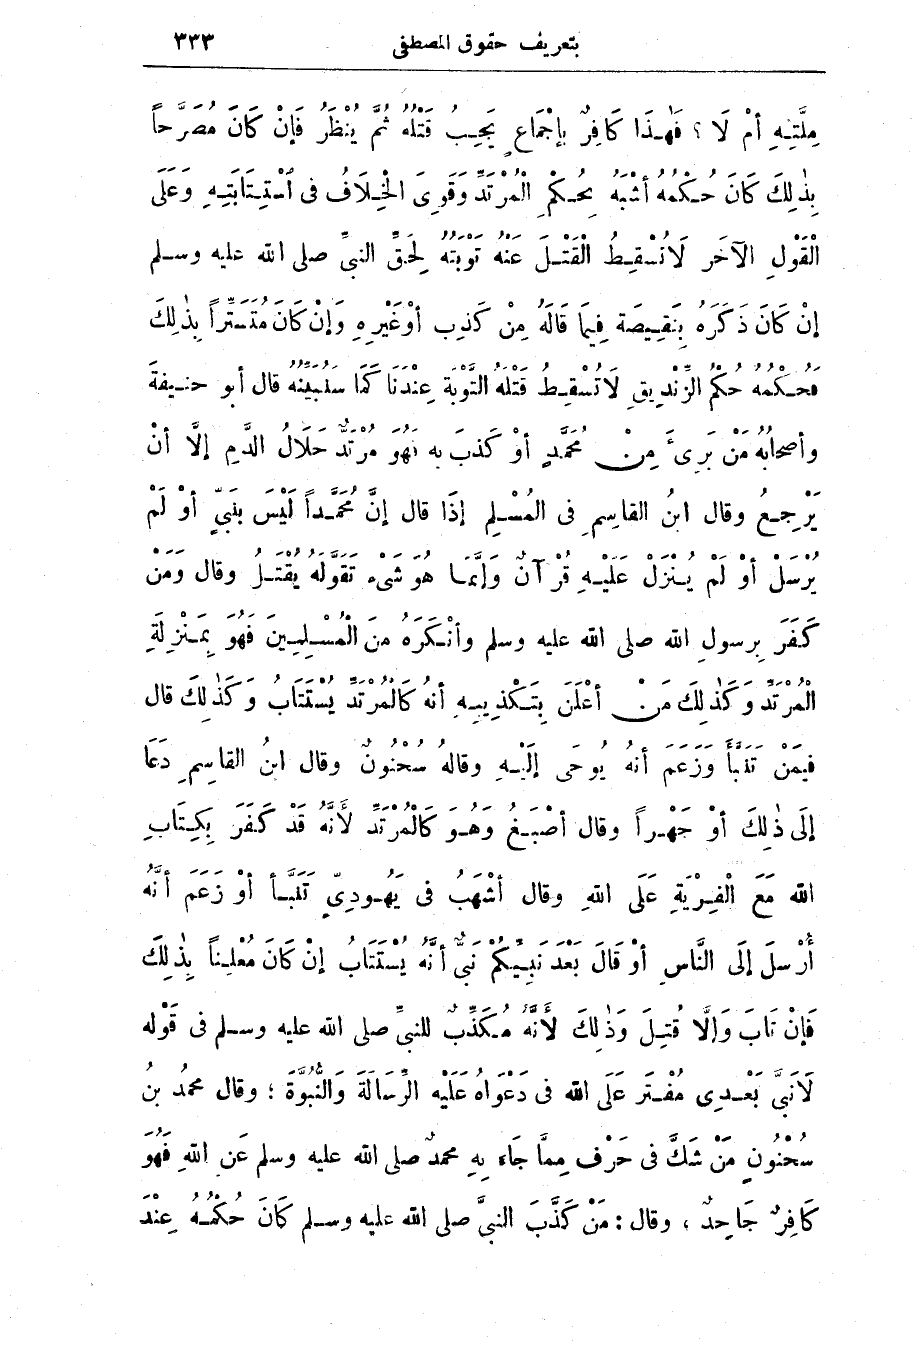 بتعريف حقوق المصطفى ٣٣٣
مِلَّتِهِ أَمْ لَا ؟ فَهٰذَا كَافِرٌ بِإِجْمَاعٍ يَجِبُ قَتْلُهُ ثُمَّ يُنْظَرُ فَإِنْ كَانَ مُصَرِّحاً
بِذٰلِكَ كَانَ حُكْمُهُ أَشْبَهَ بِحُكْمِ الْمُرْتَدِّ وَقَوِيَ الْخِلَافُ فى أسْتِتَابَتِهِ وَعَلَى
الْقَوْلِ الآخَرِ لَا تُسْقِطُ الْقَتْلَ عَنْهُ تَوْبَتُهُ لِحَقِّ النبىِّ صلى الله عليه وسلم
إِنْ كَانَ ذَكَرَهُ بِنَقِيصَةٍ فِيمَا قَالَهُ مِنْ كَذِبٍ أَوْ غَيْرِهِ وَإِنْ كَانَ مُتَسَتِّراً بِذٰلِكَ
فَحُكْمُهُ حُكْمُ الزِّنْدِيقِ لَا تُسْقِطُ قَتْلَهُ التَّوْبَةُ عِنْدَنَا كَمَا سَنُبَيِّنُهُ قال أبو حنيفةَ
وأصحابُهُ مَنْ بَرِىءَ مِنْ مُحَمَّدٍ أَوْ كَذَبَ بِهِ فَهُوَ مُرْتَدٌّ حَلَالُ الدَّمِ إِلَّا أَنْ
يَرْجِعَ وقال ابنُ القاسِمِ فى المُسْلِمِ إِذَا قال إِنَّ مُحَمَّداً لَيْسَ بِنَبِىٍّ أَوْ لَمْ
يُرْسَلْ أَوْ لَمْ يُنْزَلْ عَلَيْهِ قُرْآنٌ وَإِنَّمَا هُوَ شَىْءٌ تَقَوَّلَهُ يُقْتَلُ وقال وَمَنْ
كَفَرَ بِرسولِ الله صلى الله عليه وسلم وأَنْكَرَهُ مِنَ الْمُسْلِمِينَ فَهُوَ بِمَنْزِلَةِ
الْمُرْتَدِّ وَكَذٰلِكَ مَنْ أَعْلَنَ بِتَكْذِيبِهِ أَنَّهُ كَالْمُرْتَدِّ يُسْتَتَابُ وَكَذٰلِكَ قال
فِيمَنْ تَنَبَّأَ وَزَعَمَ أنهُ يُوحَى إِلَيْهِ وقالهُ سُحْنُونٌ وقال ابنُ القاسِمِ دَعَا
إِلَى ذٰلِكَ أَوْ جَهْراً وقال أَصْبَغُ وَهُوَ كَالْمُرْتَدِّ لأَنَّهُ قَدْ كَفَرَ بِكِتَابِ
اللهِ مَعَ الْفِرْيَةِ عَلَى اللهِ وقال أَشْهَبُ فى يَهُودِىٍّ تَنَبَّأَ أَوْ زَعَمَ أَنَّهُ
أُرْسِلَ إِلَى النَّاسِ أَوْ قَالَ بَعْدَ نَبِيِّكُمْ نَبِىٌّ أَنَّهُ يُسْتَتَابُ إِنْ كَانَ مُعْلِناً بِذٰلِكَ
فَإِنْ تَابَ وَإِلَّا قُتِلَ وَذٰلِكَ لأَنَّهُ مُكَذِّبٌ للنبىِّ صلى الله عليه وسلم فى قَوْلِهِ
لَا نَبِىَّ بَعْدِى مُفْتَرٍ عَلَى اللهِ فى دَعْوَاهُ عَلَيْهِ الرِّسَالَةَ وَالنُّبُوَّةَ ؛ وقال محمدُ بنُ
سُحْنُونٍ مَنْ شَكَّ فى حَرْفٍ مِمَّا جَاءَ بِهِ محمدٌ صلى الله عليه وسلم عَنِ اللهِ فَهُوَ
كَافِرٌ جَاحِدٌ ، وقال : مَنْ كَذَّبَ النبىَّ صلى الله عليه وسلم كَانَ حُكْمُهُ عِنْدَ